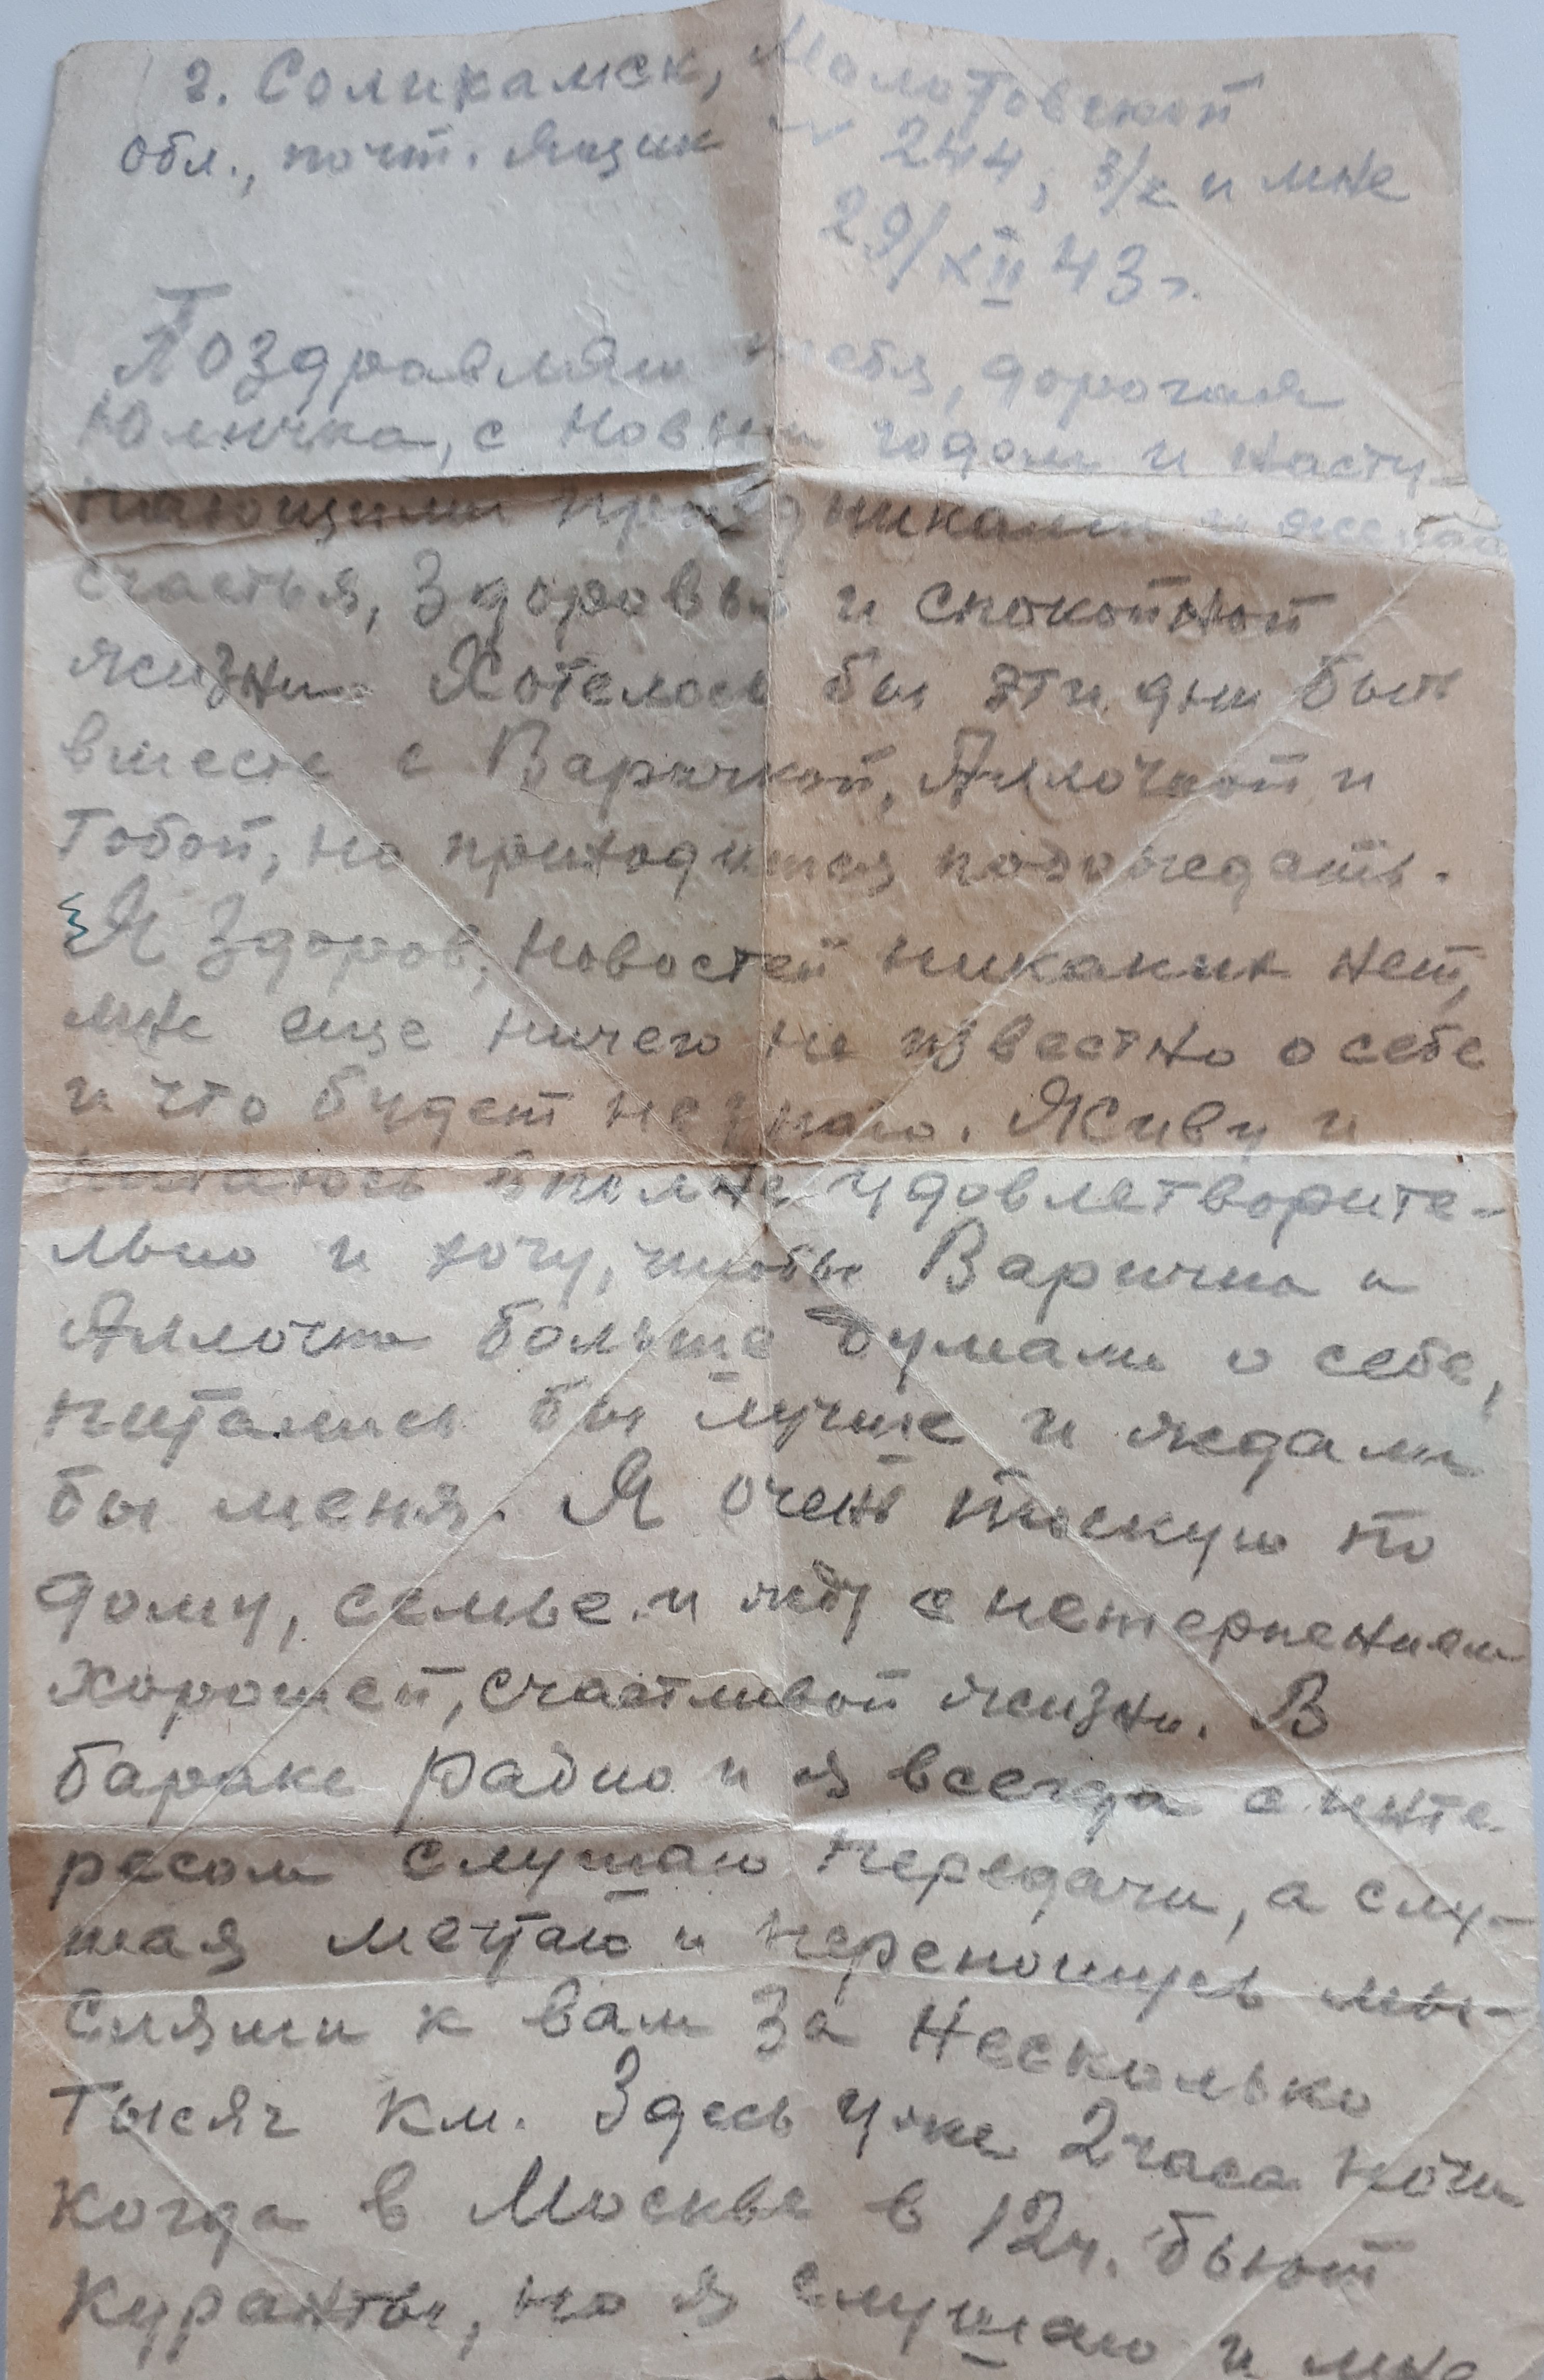 г. Соликамск, Молотовской
обл., почт. ящик № 244, з/к и мне
29/XII 43 г.
Поздравляю тебя, дорогая
Юличка, с Новым годом и насту-
пающими праздниками и желаю
счастья, здоровья и спокойной
жизни. Хотелось бы эти дни быть
вместе с Варичкой, Аллочкой и
Тобой, но приходится подождать.
Я здоров, новостей никаких нет,
мне еще ничего не известно о себе
и что будет не знаю. Живу и
питаюсь вполне удовлетворите-
льно и хочу, чтобы Варичка и
Аллочка больше думали о себе,
питались бы лучше и ждали
бы меня. Я очень тоскую по
дому, семье и жду с нетерпением
хорошей, счастливой жизни. В
бараке радио и я всегда с инте-
ресом слушаю передачи, а слу-
шая мечтаю и переношусь мы-
слями к вам за несколько
тысяч км. Здесь уже 2 часа ночи
когда в Москве в 12 ч. бьют
куранты, но я слушаю и мне